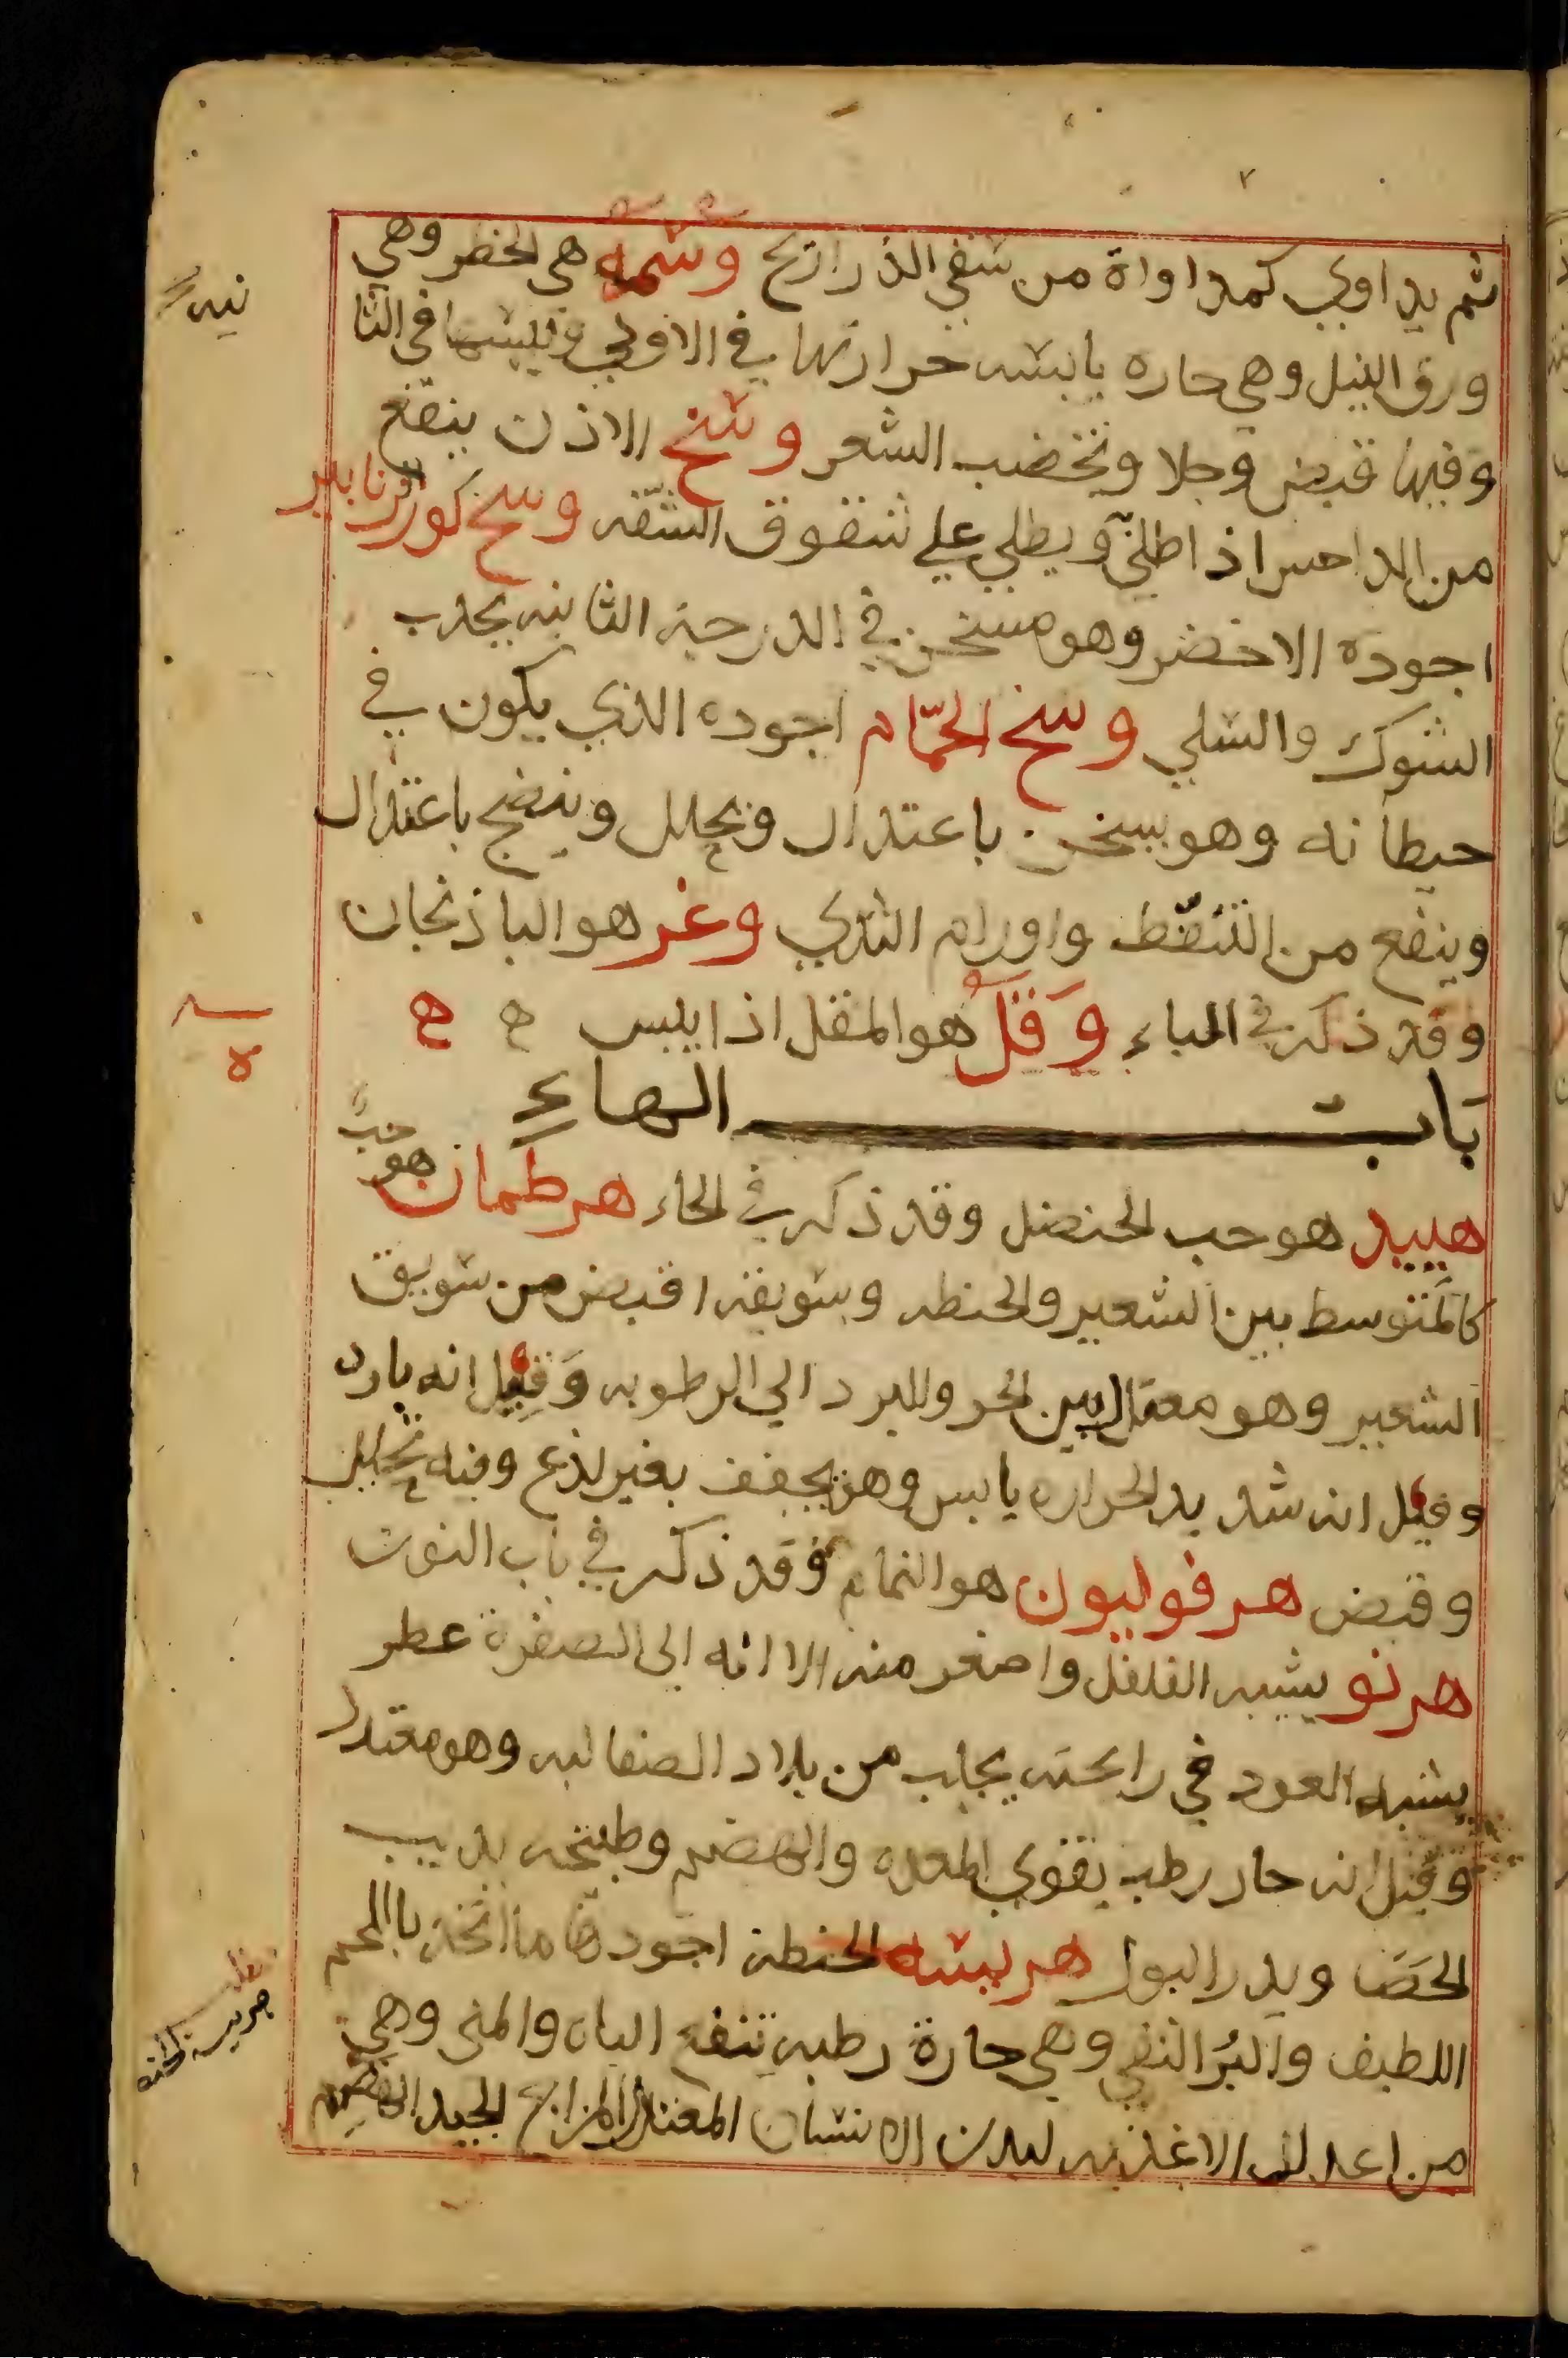 ثم يداوي كمداواة من سقي الذراريح وسمه هي الخطر وهي
ورق النيل وهي حاره يابسه حرارتها في الاولي ويبسها في الثا
نيه
وفيها قبض وجلا وتخضب الشعر وسخ الاذن ينفع
من الداحس اذ اطلي ويطلي علي شقوق الشفه وسخ كور الزنابير
اجوده الاخضر وهو مسخن في الدرجة الثانيه يجذب
الشوك والسلي وسخ الحمّام اجوده الذي يكون في
حيطانه وهو يسخن باعتدال ويحلل وينضج باعتدال
وينفع من التنفّط واورام الثدي وغر هو الباذنجان
وقد ذكر في الباء وَقلُ هو المقل اذا يبس ح ح
باب الهاء
هبيد هو حب الحنضل وقد ذكر في الحاء هرطمان هو حبُّ
كالمتوسط بين الشعير والحنطه وسويقه اقبض من سويق
الشعير وهو معتدل بين الحر والبرد الي الرطوبه وَقِيل انه بارد
وقيل انه شديد الحراره يابس وهو يجفف بغير لذع وفيه تحليل
وقبض هرفوليون هو النمام وقد ذكر في باب النون
هرنو يشبه الفلفل واصغر منه الا انه الى الصفرة عطر
يشبه العود في رايحته يجلب من بلاد الصقالبه وهو معتدل
وقيل انه حار رطب يقوي المعده والهضم وطبيخه يذيب
الحَصَا ويدر البول هريسه الحنطه اجودها ما اتخذ باللحم
اللطيف والبُر النقي وهي حارة رطبه تنفع الباه والمني وهي
من اعدل الاغذيه لبدن الانسان المعتدل المزاج الجيد الهضم
هريسة الحنطه